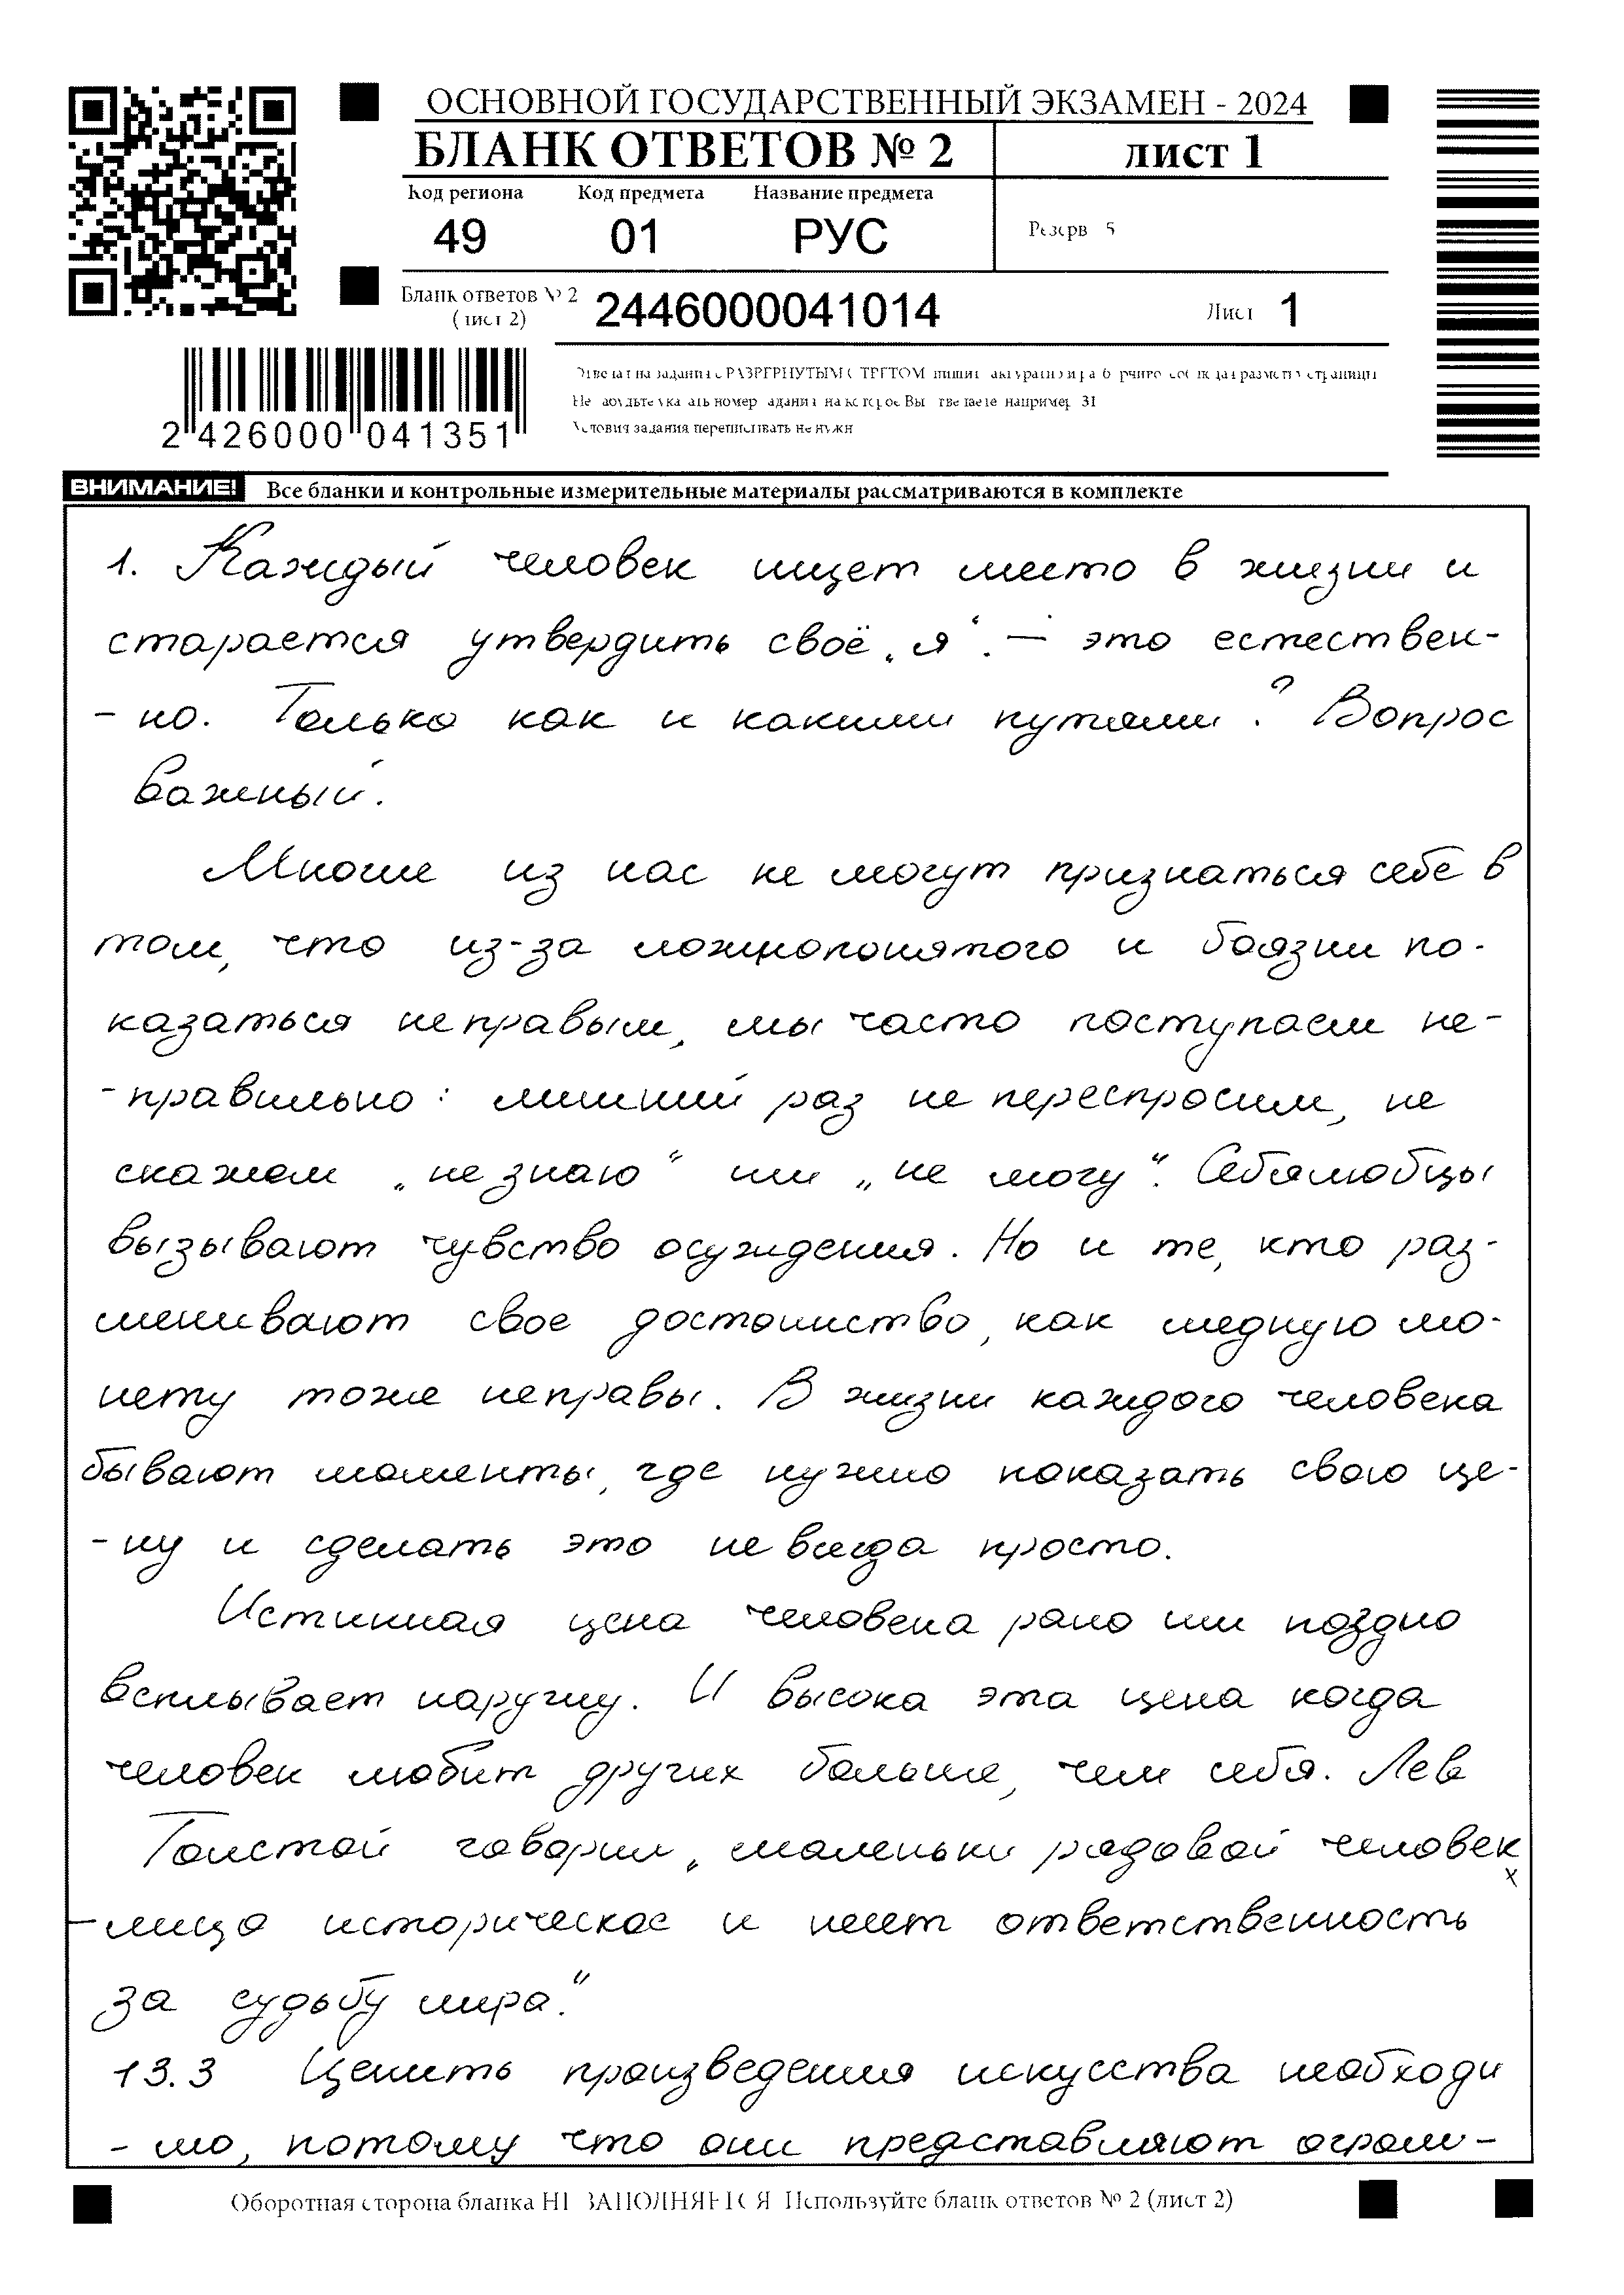 ОСНОВНОЙ ГОСУДАРСТВЕННЫЙ ЭКЗАМЕН - 2024
БЛАНК ОТВЕТОВ № 2
ЛИСТ 1
Код региона Код предмета Название предмета
49 01 РУС
Резерв 5
Бланк ответов № 2
(лист 2)
2446000041014
Лист 1
2 426000 041351
Условия задания переписывать не нужн
ВНИМАНИЕ! Все бланки и контрольные измерительные материалы рассматриваются в комплекте
1. Каждый человек ищет место в жизни и
старается утвердить своё „я“. — это естествен-
- но. Только как и какими путями? Вопрос
важный.
Многие из нас не могут признаться себе в
том, что из-за ложнопонятого и боязни по-
казаться неправым, мы часто поступаем не-
- правильно: лишний раз не переспросим, не
скажем „не знаю“ или „не могу“. Себялюбцы
вызывают чувство осуждения. Но и те, кто раз-
менивают свое достоинство, как медную мо-
нету тоже неправы. В жизни каждого человека
бывают моменты, где нужно показать свою це-
- ну и сделать это не всегда просто.
Истинная цена человека рано или поздно
всплывает наружу. И высока эта цена когда
человек любит других больше, чем себя. Лев
Толстой говорил „маленьки рядовой человек
- лицо историческое и имеет ответственность
за судьбу мира.“
13.3 Ценить произведения искусства необходи
- мо, потому что они представляют огром-
Оборотная сторона бланка НЕ ЗАПОЛНЯЕТСЯ Используйте бланк ответов № 2 (лист 2)